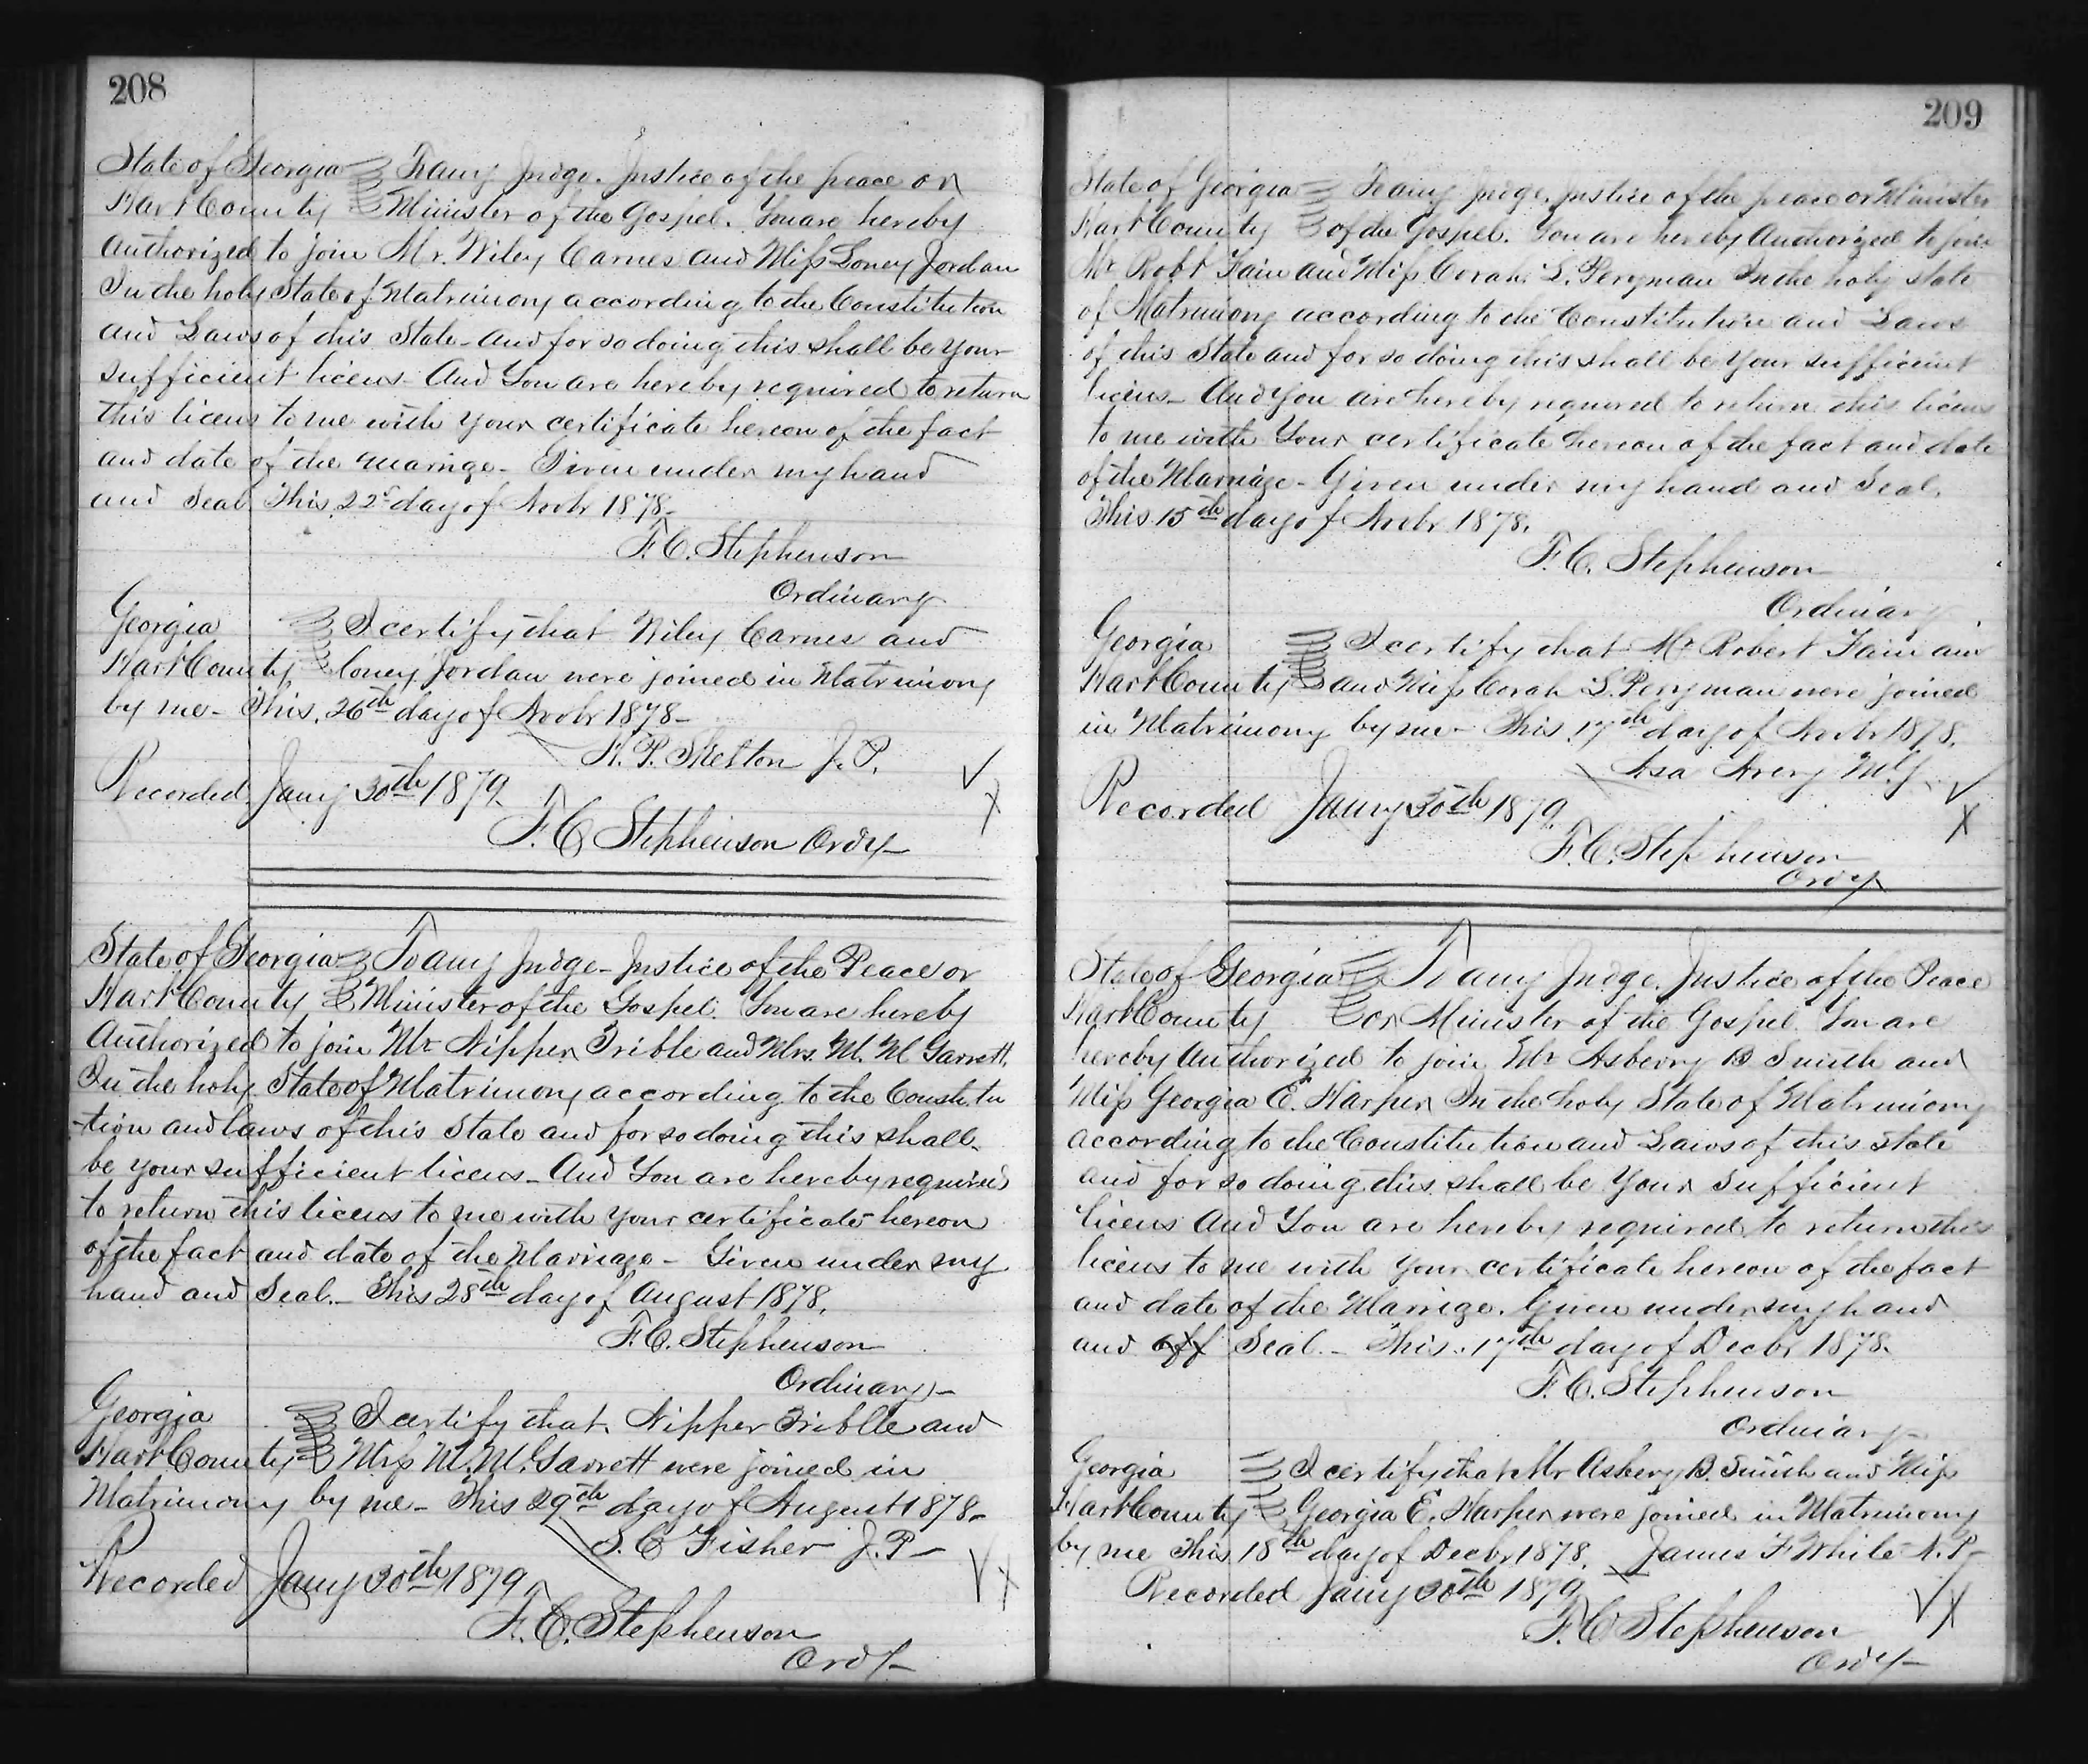 208
State of Georgia To any Judge. Justice of the peace or
Hart County Minister of the Gospel. You are hereby
Authorized to join Mr. Wiley Carnes and Miss Loney Jordan
In the holy State of Matrimony according to the Constitution
and Laws of this State - and for so doing this shall be your
sufficient licens - And You are hereby required to return
this licens to me with your certificate hereon of the fact
and date of the marrige - Given under my hand
and Seal This 22d day of Novbr 1878 -
F. C. Stephenson
Ordinary
Georgia I certify that Wiley Carnes and
Hart County Loney Jordan were joined in Matrimony
by me - This 26th day of Novbr 1878 -
Skelton J. P.
Recorded Jany 30th 1879.
F. C Stephenson Ordy -
State of Georgia To any Judge - Justice of the Peace or
Hart County Minister of the Gospel. You are hereby
Authorized to join Mr Nipper Tribble and Mrs. M. M Garrett
In the holy State of Matrimony according to the Constitu
-tion and laws of this State and for so doing this shall
be your sufficient licens - And You are hereby required
to return this licens to me with your certificate hereon
of the fact and date of the Marriage - Given under my
hand and Seal. - This 28th day of August 1878.
F. C. Stephenson
Ordinary -
Georgia I certify that Nipper Tribble and
Hart County M. M. Garrett were joined in
Matrimony by me - This 29th day of August 1878 -
S. C Fisher J. P -
Recorded Jany 30th 1879
F. C. Stephenson
Ordy -
209
State of Georgia To any Judge, justice of the peace or Minister
Hart County of the Gospel. You are hereby Authorized to join
Mr Robt Fain and Miss Corah L. Perryman In the holy state
of Matrimony according to the Constitution and Laws
of this State and for so doing this shall be Your sufficient
licens - And You are hereby required to return this licens
to me with Your certificate hereon of the fact and date
of the Marriage - Given under my hand and Seal.
This 15th day of Novbr 1878.
F. C. Stephenson
Ordinary
Georgia I certify that Mr Robert Fain
Hart County and Miss Corah L. Perryman were joined
in Matrimony by me - This 17th day of Novbr 1878.
Asa Avery M.G.
Recorded Jany 30th 1879
F. C. Stephenson
Ordy
State of Georgia To any Judge. Justice of the Peace
Hart County or Minister of the Gospel. You are
hereby Authorized to join Mr Asberry B Smith and
Miss Georgia E. Harper In the holy State of Matrimony
according to the Constitution and Laws of this State
and for so doing this shall be Your Sufficient
licens And You are hereby required to return this
licens to me with Your certificate hereon of the fact
and date of the Marrige. Given under my hand
and off Seal. - This 17th day of Decbr 1878.
F. C. Stephenson
Ordinary -
Georgia I certify that Mr Asbery B. Smith and Miss
Hart County Georgia E. Harper were joined in Matrimony
by me This 18th day of Decbr 1878. James F White N. P -
Recorded Jany 30th 1879
F. C Stephenson
Ordy -